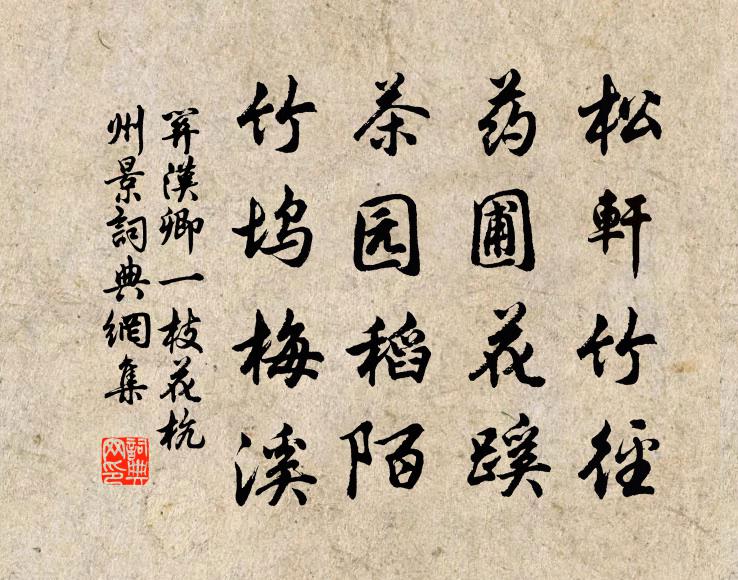 松軒竹徑
药圃花蹊
茶园稻陌
竹坞梅溪
関漢卿一枝花杭
州景詞典網集
詞典
网印